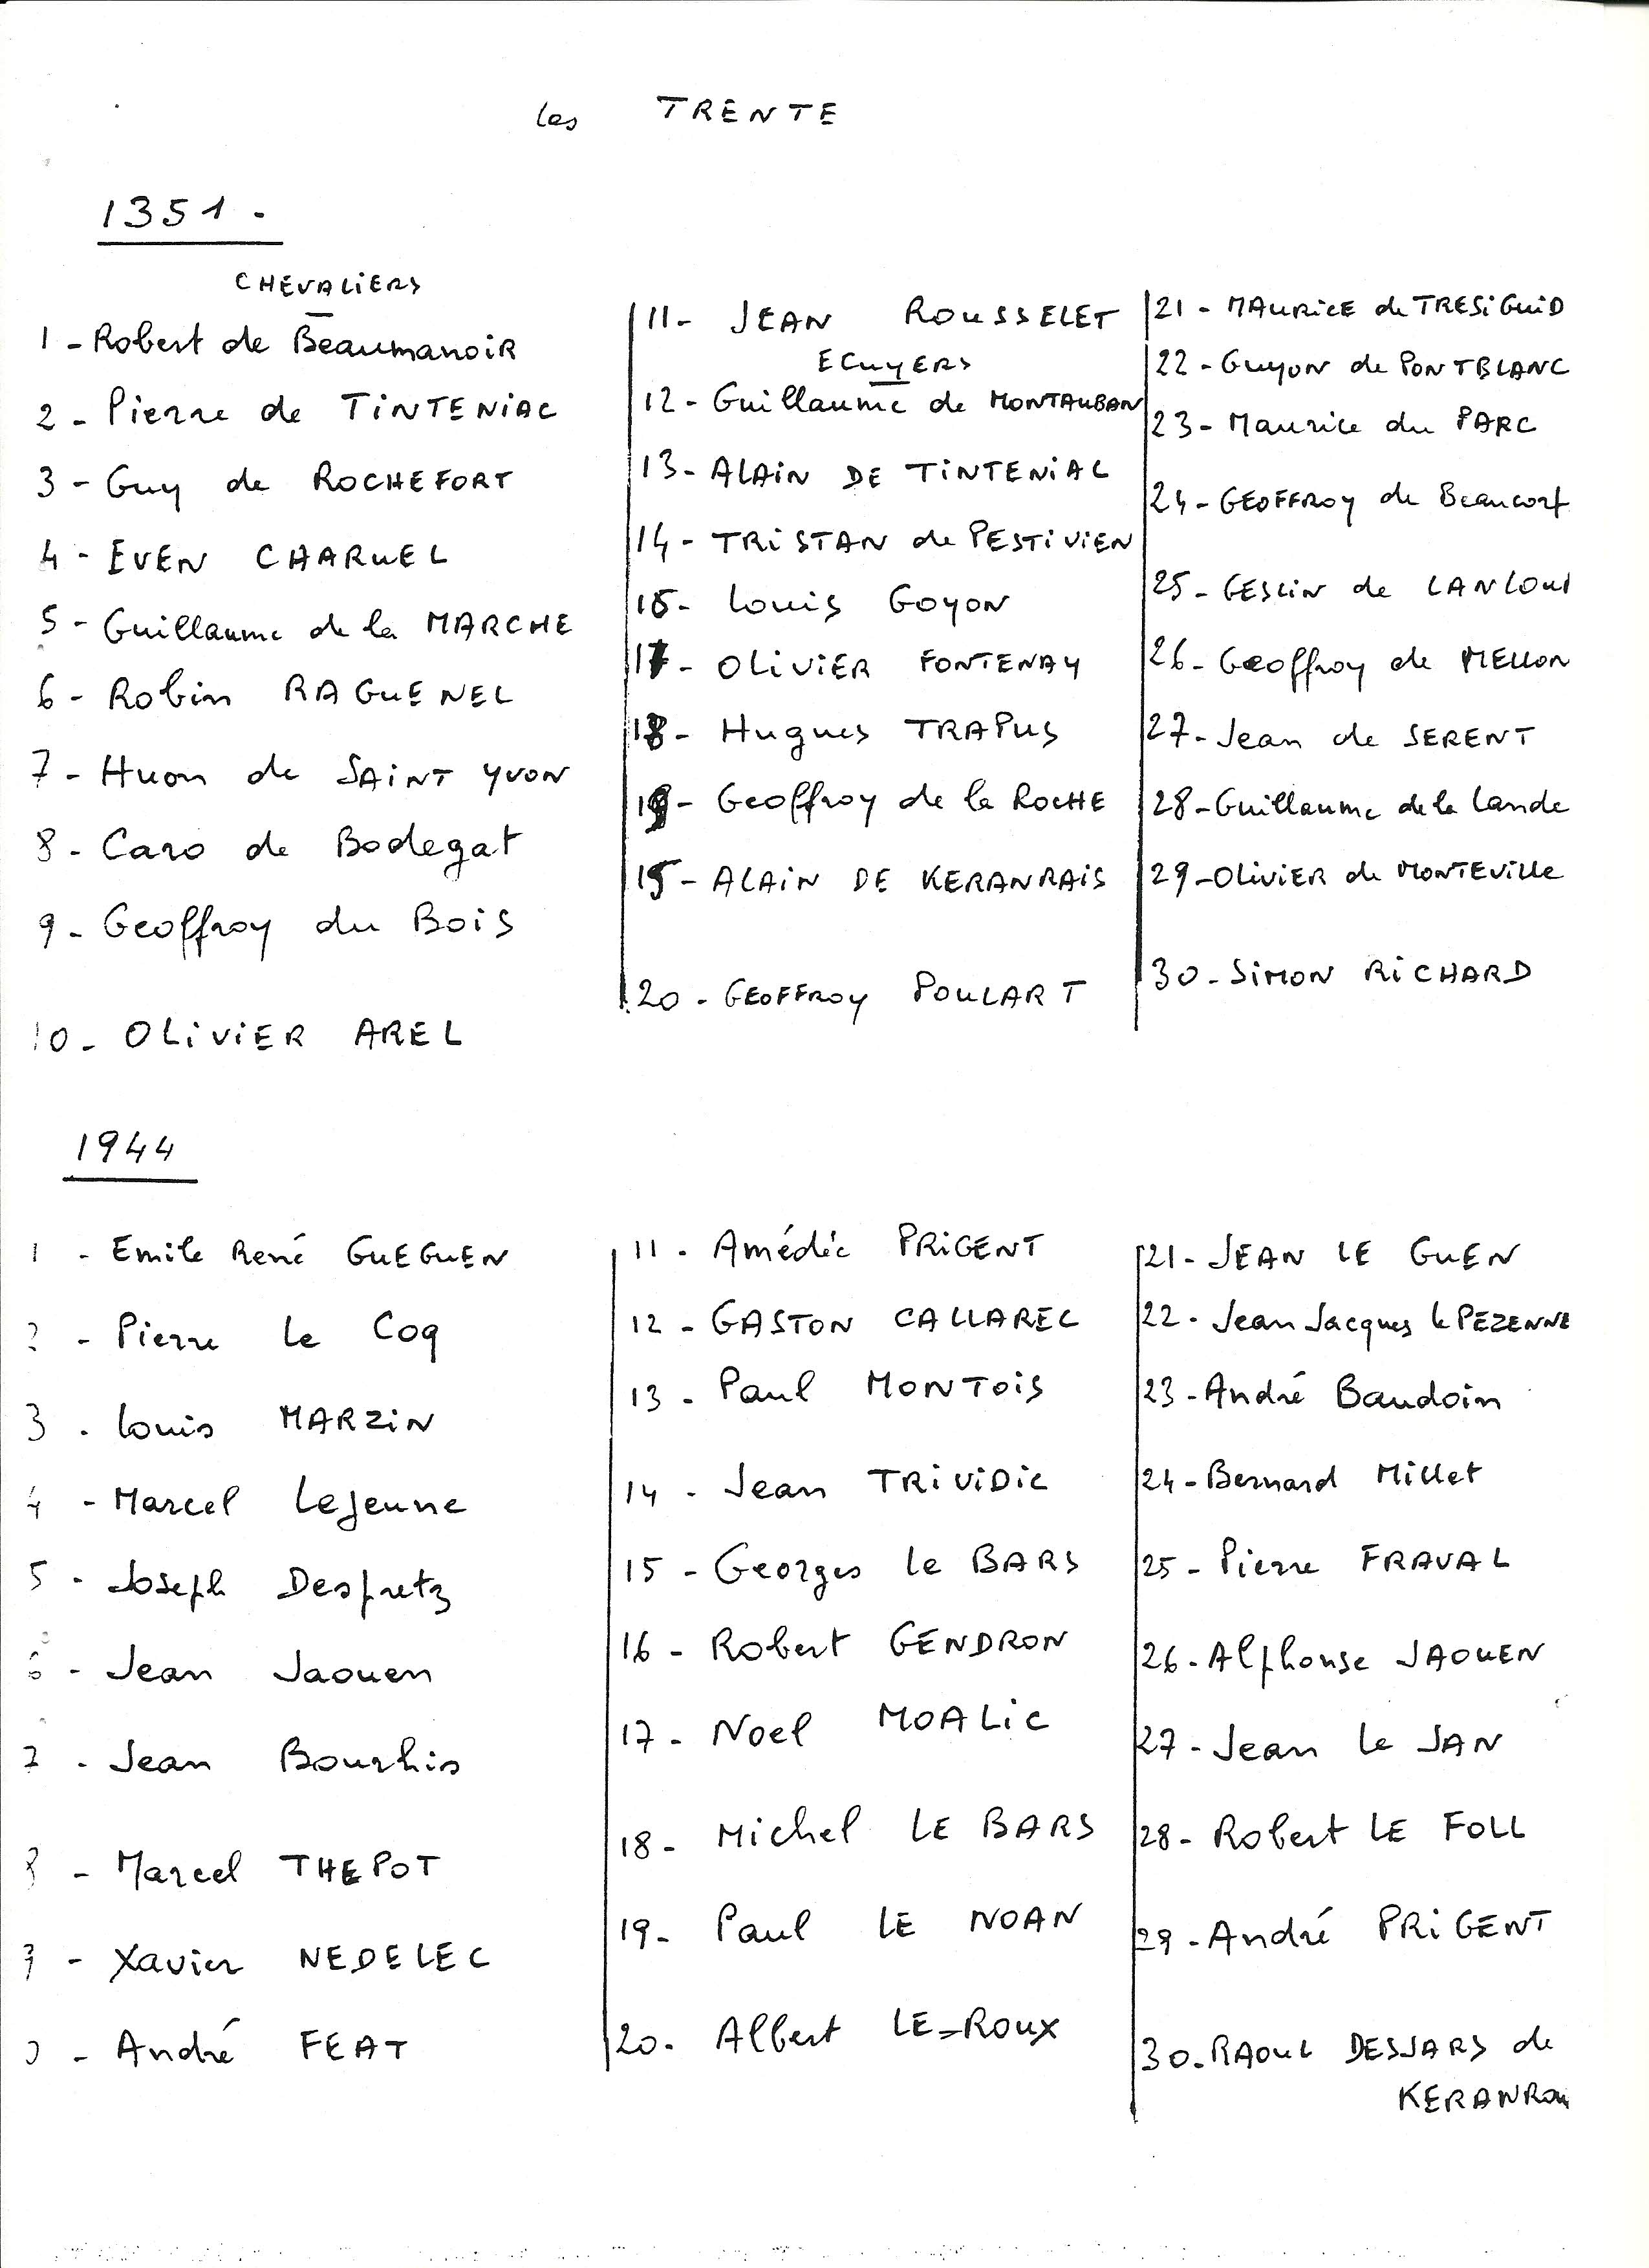 les TRENTE
1351.
CHEVALIERS
1 - Robert de BeaumanoiR
2 - Pierre de TINTENIAC
3 - Guy de ROCHEFORT
4 - EVEN CHARUEL
5 - Guillaume de la MARCHE
6 - Robin RAGUENEL
7 - Huon de SAINT YVON
8 - Caro de Bodegat
9 - Geoffroy du BoiS
10 - OLIVIER AREL
11 - JEAN ROUSSELET
ECUYERS
12 - Guillaume de MONTAUBAN
13 - ALAIN DE TINTENIAC
14 - TRISTAN de PESTIVIEN
16 - Louis GOYON
17 - OLIVIER FONTENAY
18 - Hugues TRAPUS
19 - Geoffroy de la ROCHE
15 - ALAIN DE KERANRAIS
20 - GEOFFROY POULART
21 - MAURICE de TRESIGUID
22 - Guyon de PONTBLANC
23 - Maurice du PARC
24 - GEOFFROY de Beaucorf
25 - GESLIN de LANLOUI
26 - Geoffroy de MELLON
27 - Jean de SERENT
28 - Guillaume de la Lande
29 - OLIVIER de MONTEVILLE
30 - SIMON RICHARD
1944
1 - Emile René GUEGUEN
2 - Pierre Le Coq
3 - Louis MARZIN
4 - Marcel LeJeune
5 - Joseph Despretz
6 - Jean Jaouen
7 - Jean Bourhis
8 - Marcel THEPOT
9 - Xavier NEDELEC
0 - André FEAT
11 - Amédée PRIGENT
12 - GASTON CALLAREC
13 - Paul MONTOIS
14 - Jean TRIVIDIC
15 - Georges Le BARS
16 - Robert GENDRON
17 - Noel MOALIC
18 - Michel LE BARS
19 - Paul LE NOAN
20 - Albert LE-ROUX
21 - JEAN LE GUEN
22 - Jean Jacques le PEZENNE
23 - André Baudoin
24 - Bernard Millet
25 - Pierre FRAVAL
26 - Alphonse JAOUEN
27 - Jean Le JAN
28 - Robert LE FOLL
29 - André PRIGENT
30 - RAOUL DESJARS de
KERANROU